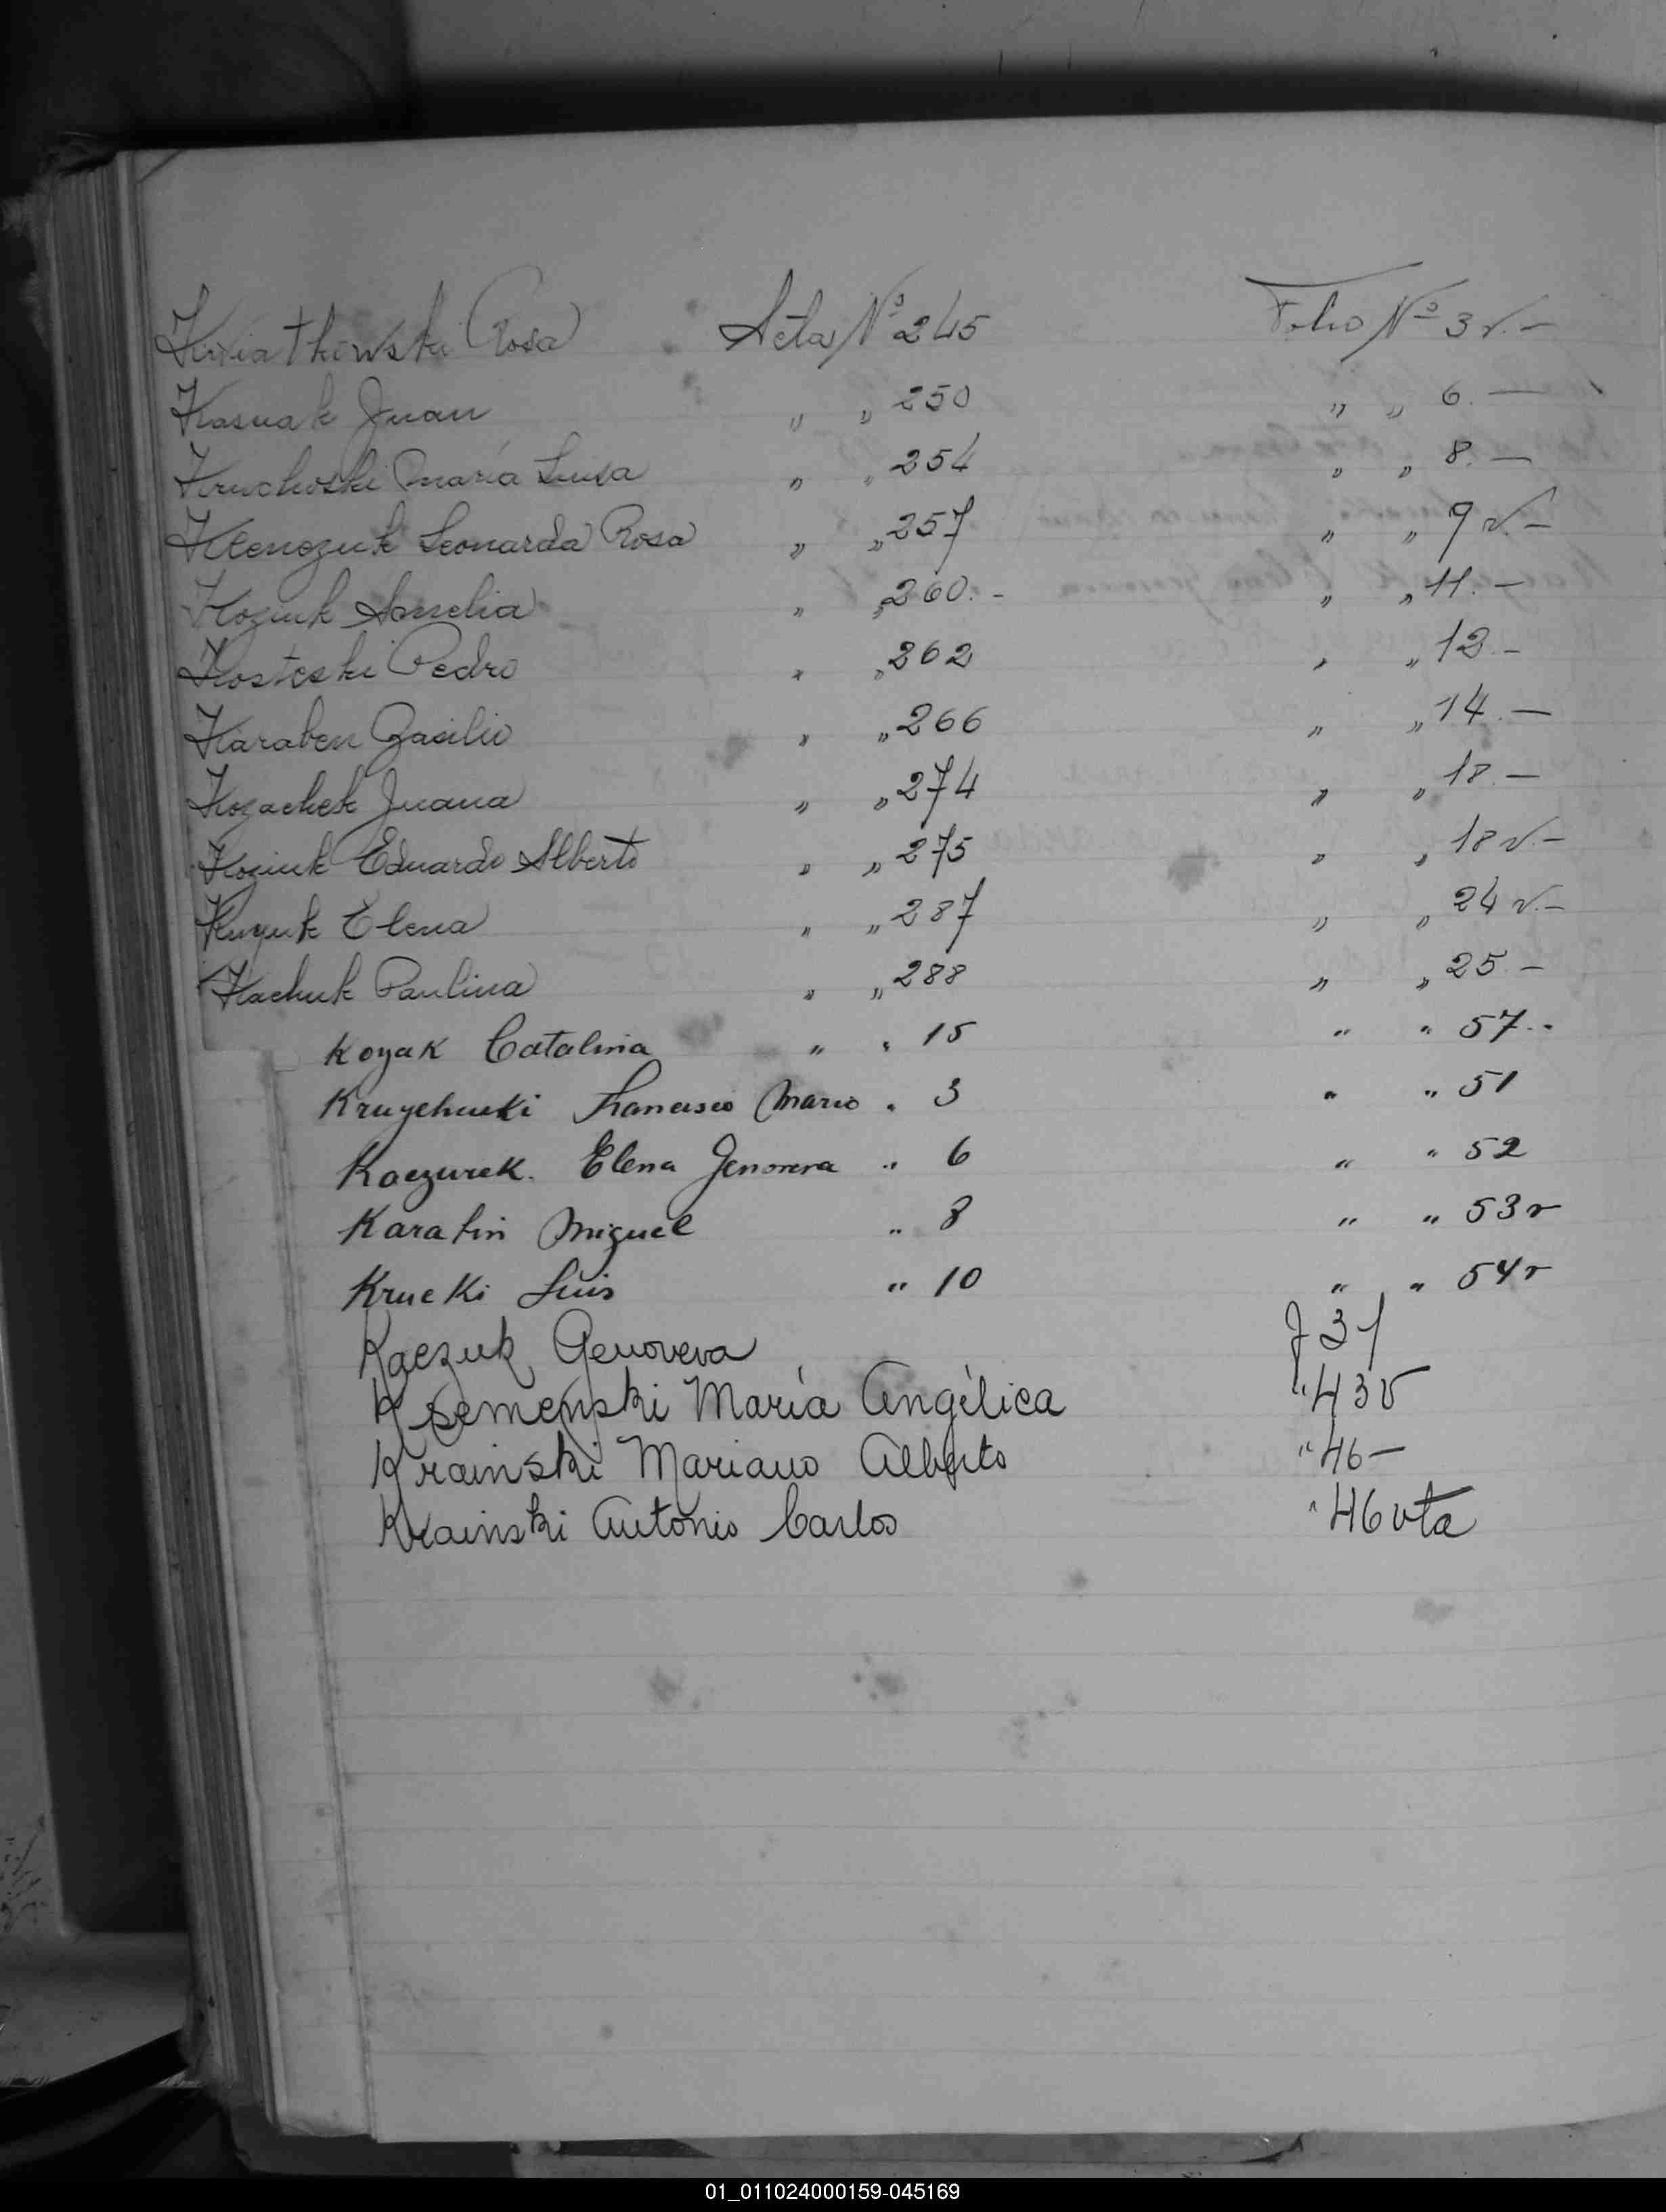 Kwiatkowski Rosa Acta Nº 245 Folio Nº 3 v.-
Kasuak Juan " " 250 " " 6.-
Kruchoski María Luisa " " 254 " " 8.-
Klenczuk Leonarda Rosa " " 257 " " 9 v.-
Koziuk Amelia " " 260.- " " 11.-
Kosteski Pedro " " 262 " " 12.-
Karaben Basilio " " 266 " " 14.-
Kozachek Juana " " 274 " " 18.-
Koziuk Eduardo Alberto " " 275 " " 18 v.-
Elena " " 287 " " 24 v.-
Kachuk Paulina " " 288 " " 25.-
Kozak Catalina " " 15 " " 57..
Francisco Mario " 3 " " 51
Kaczurek. Elena Jenoveva " 6 " " 52
Karatin Miguel " 8 " " 53v
Krucki Luis " 10 " " 54v
Kaczuk Genoveva F 31
Ksemenski María Angélica " 43v
Krainski Mariano Alberto " 46-
Krainski Antonio Carlos " 46 vta
01_011024000159-045169